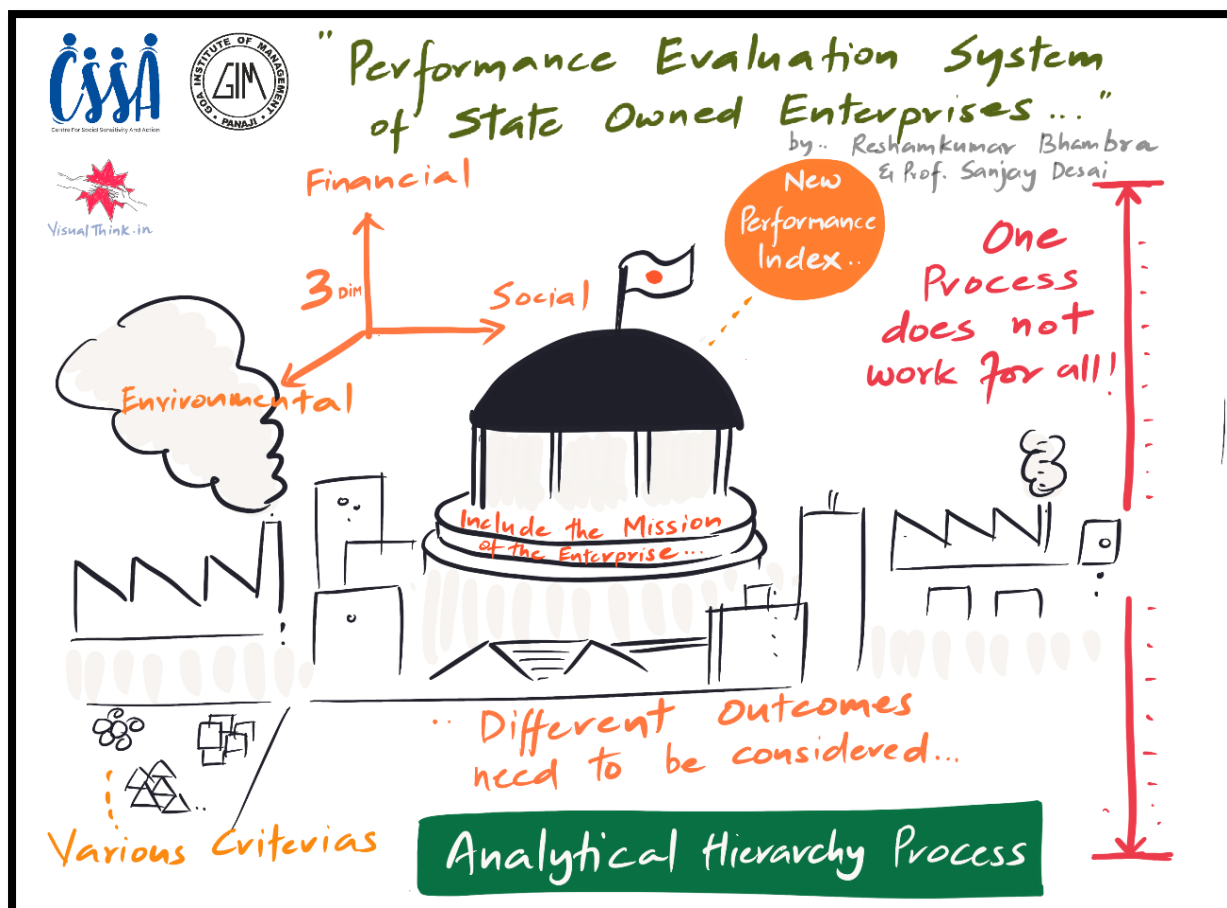 CSSA
Centre For Social Sensitivity And Action
GOA INSTITUTE OF MANAGEMENT
GIM
PANAJI
VisualThink.in
"Performance Evaluation System
of State Owned Enterprises..."
by.. Reshamkumar Bhambra
& Prof. Sanjay Desai
Financial
3 DIM
Social
Environmental
New
Performance
Index..
One
Process
does not
work for all!
Include the Mission
of the Enterprise...
.. Different Outcomes
need to be considered...
Various Criterias
Analytical Hierarchy Process